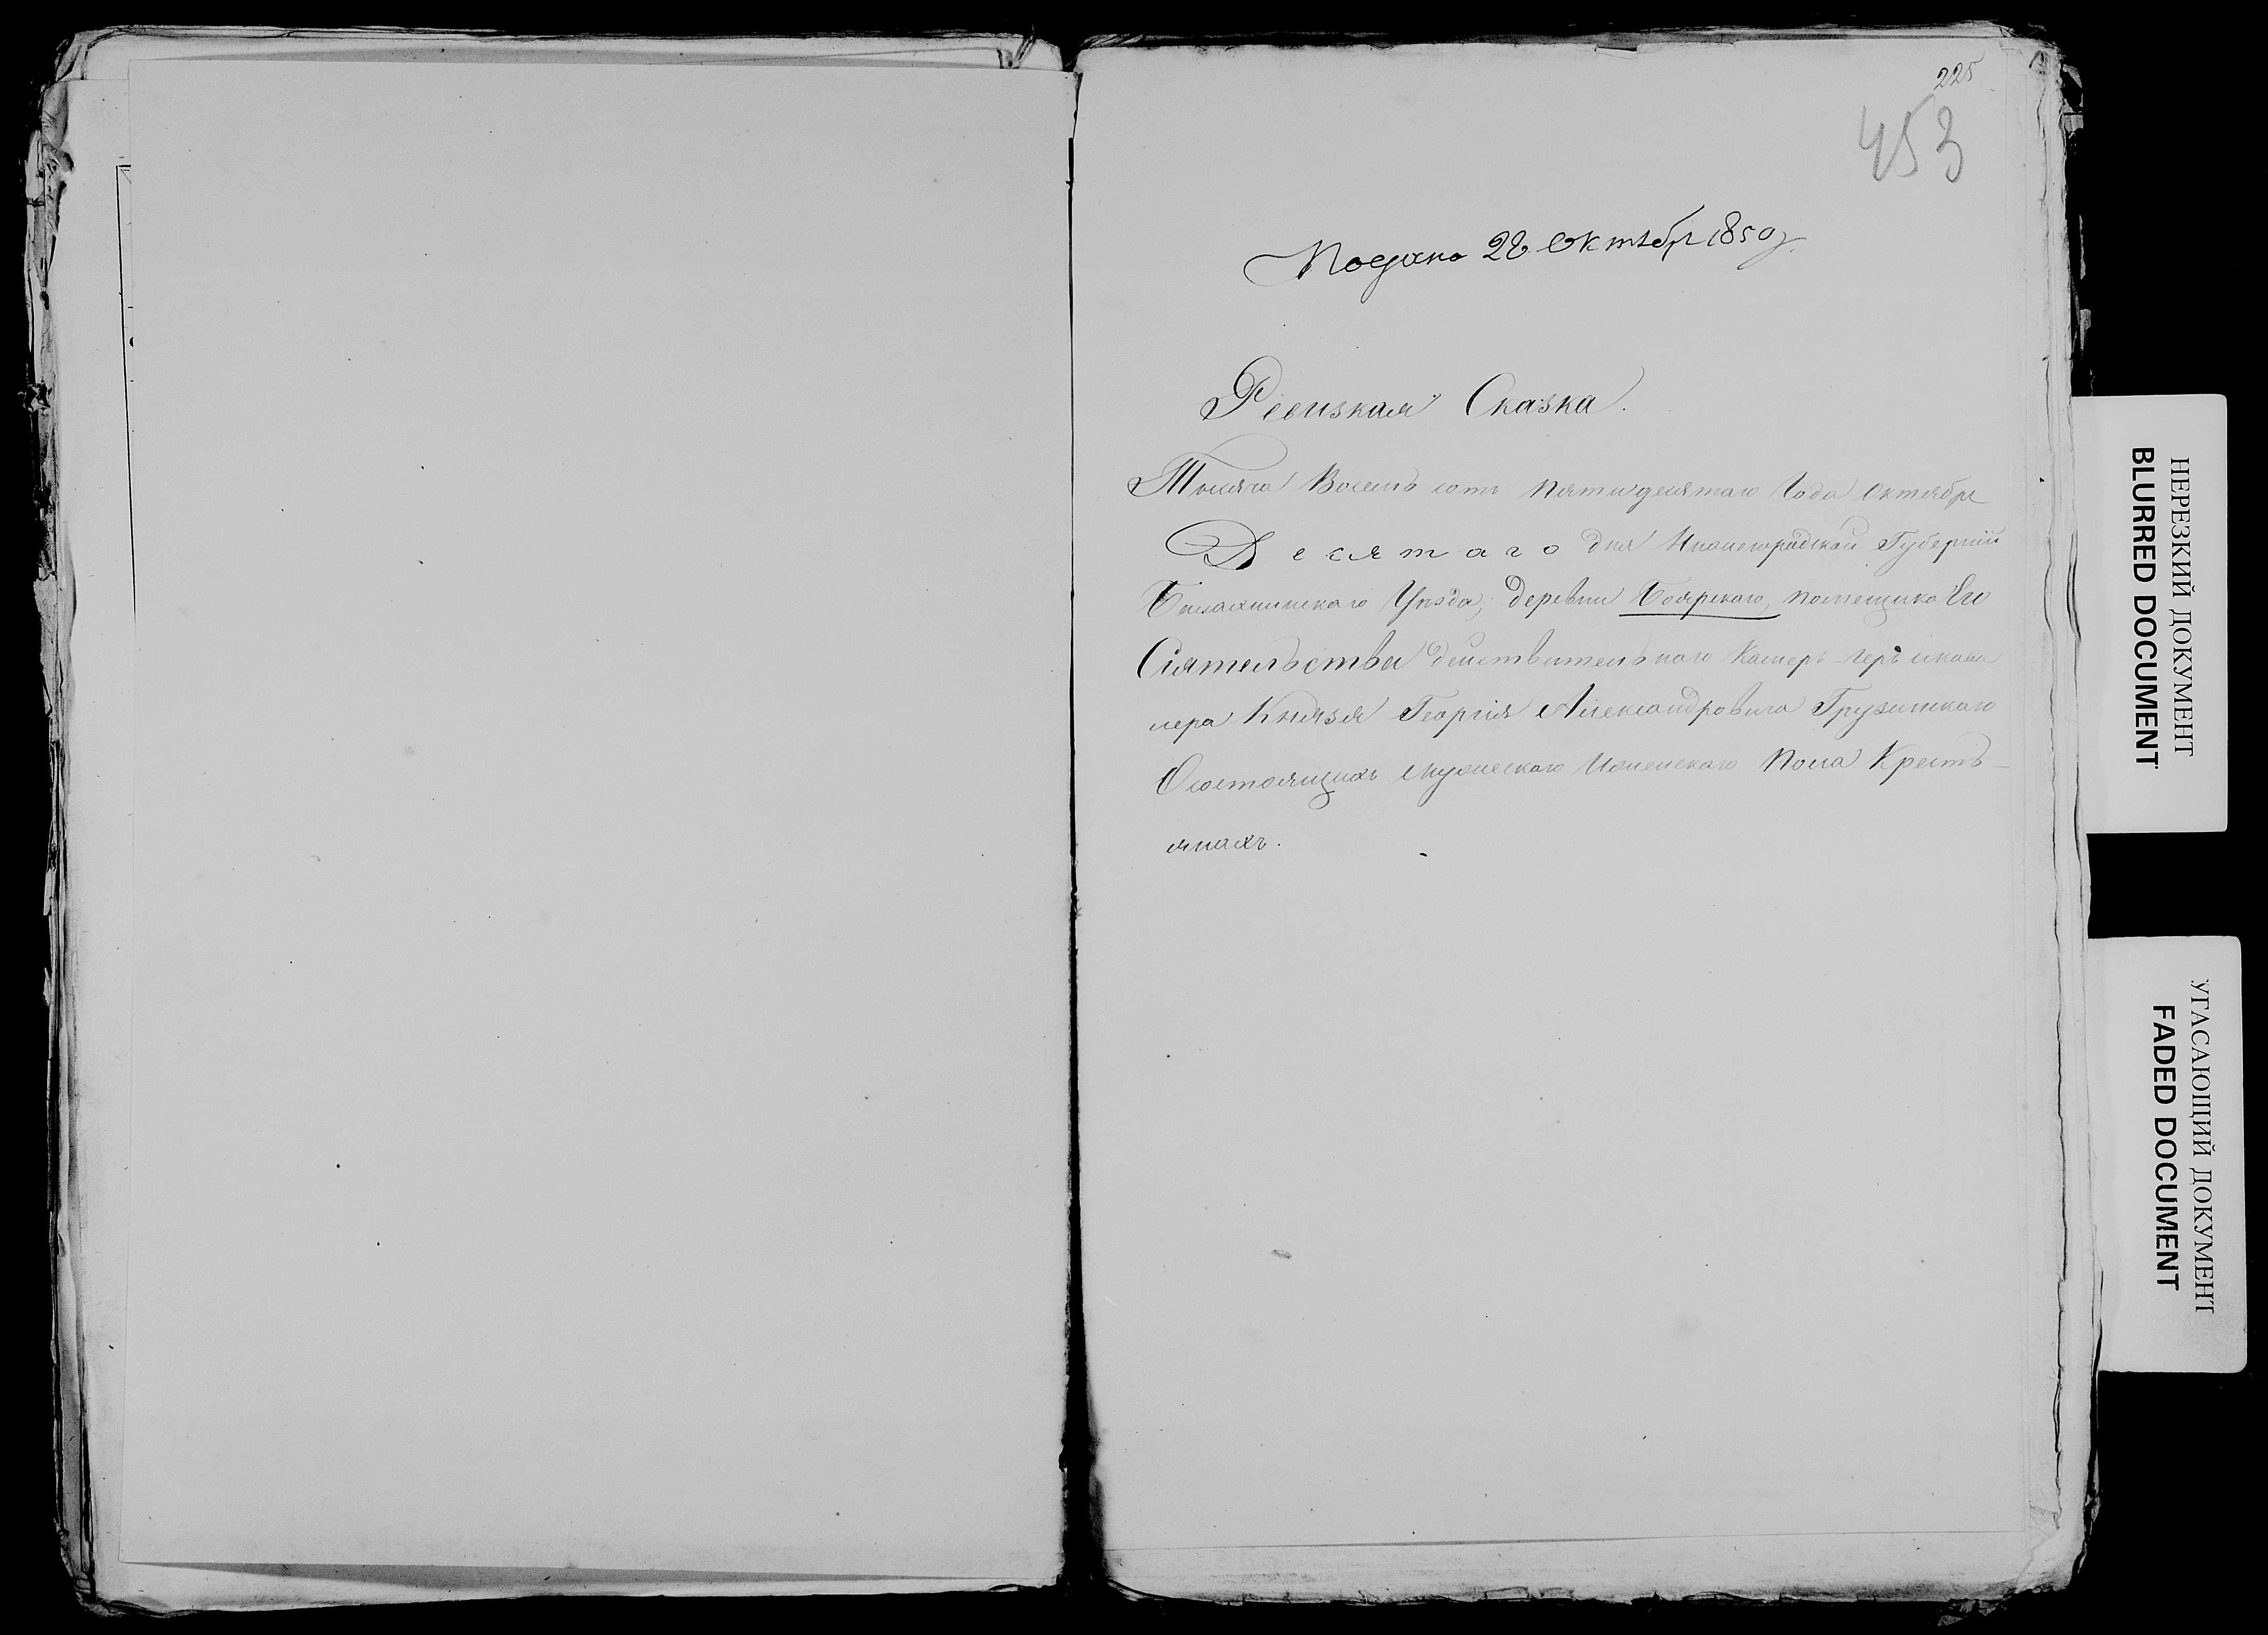 225
453
Подано 28 Октябр 1850 г.
Ревизкая Сказка.
Тысяча Восемь сотъ пятидесятаго Года Октября
Десятаго дня Нижегородской Губернии
Балахнинскаго Уѣзда, деревни Боярскаго, помещика Ег
Сіятельства действительнаго Камеръ-геръ икава
лера Князя Георгія Александровича Грузинскаго
Осостоящихъ мужескаго Иженскаго Пола Кресть-
янахъ.
НЕРЕЗКИЙ ДОКУМЕНТ
BLURRED DOCUMENT
УГАСАЮЩИЙ ДОКУМЕНТ
FADED DOCUMENT